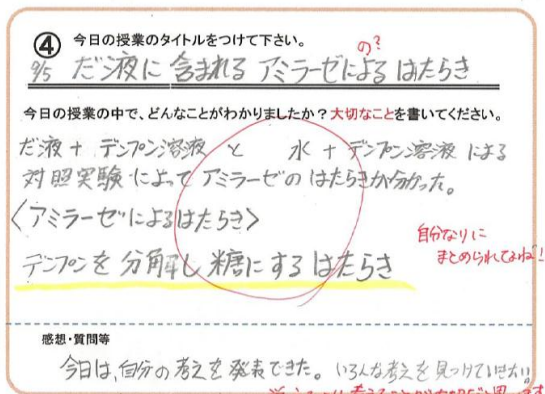 ④ 今日の授業のタイトルをつけて下さい。
の?
9/5 だ液に含まれるアミラーゼによるはたらき
今日の授業の中で、どんなことがわかりましたか?大切なことを書いてください。
だ液+デンプン溶液と 水+デンプン溶液による
対照実験によってアミラーゼのはたらきが分かった。
〈アミラーゼによるはたらき〉
自分なりに
まとめられてるね!
デンプンを分解し糖にするはたらき
感想・質問等
今日は、自分の考えを発表できた。いろんな考えを見つけていきたい。